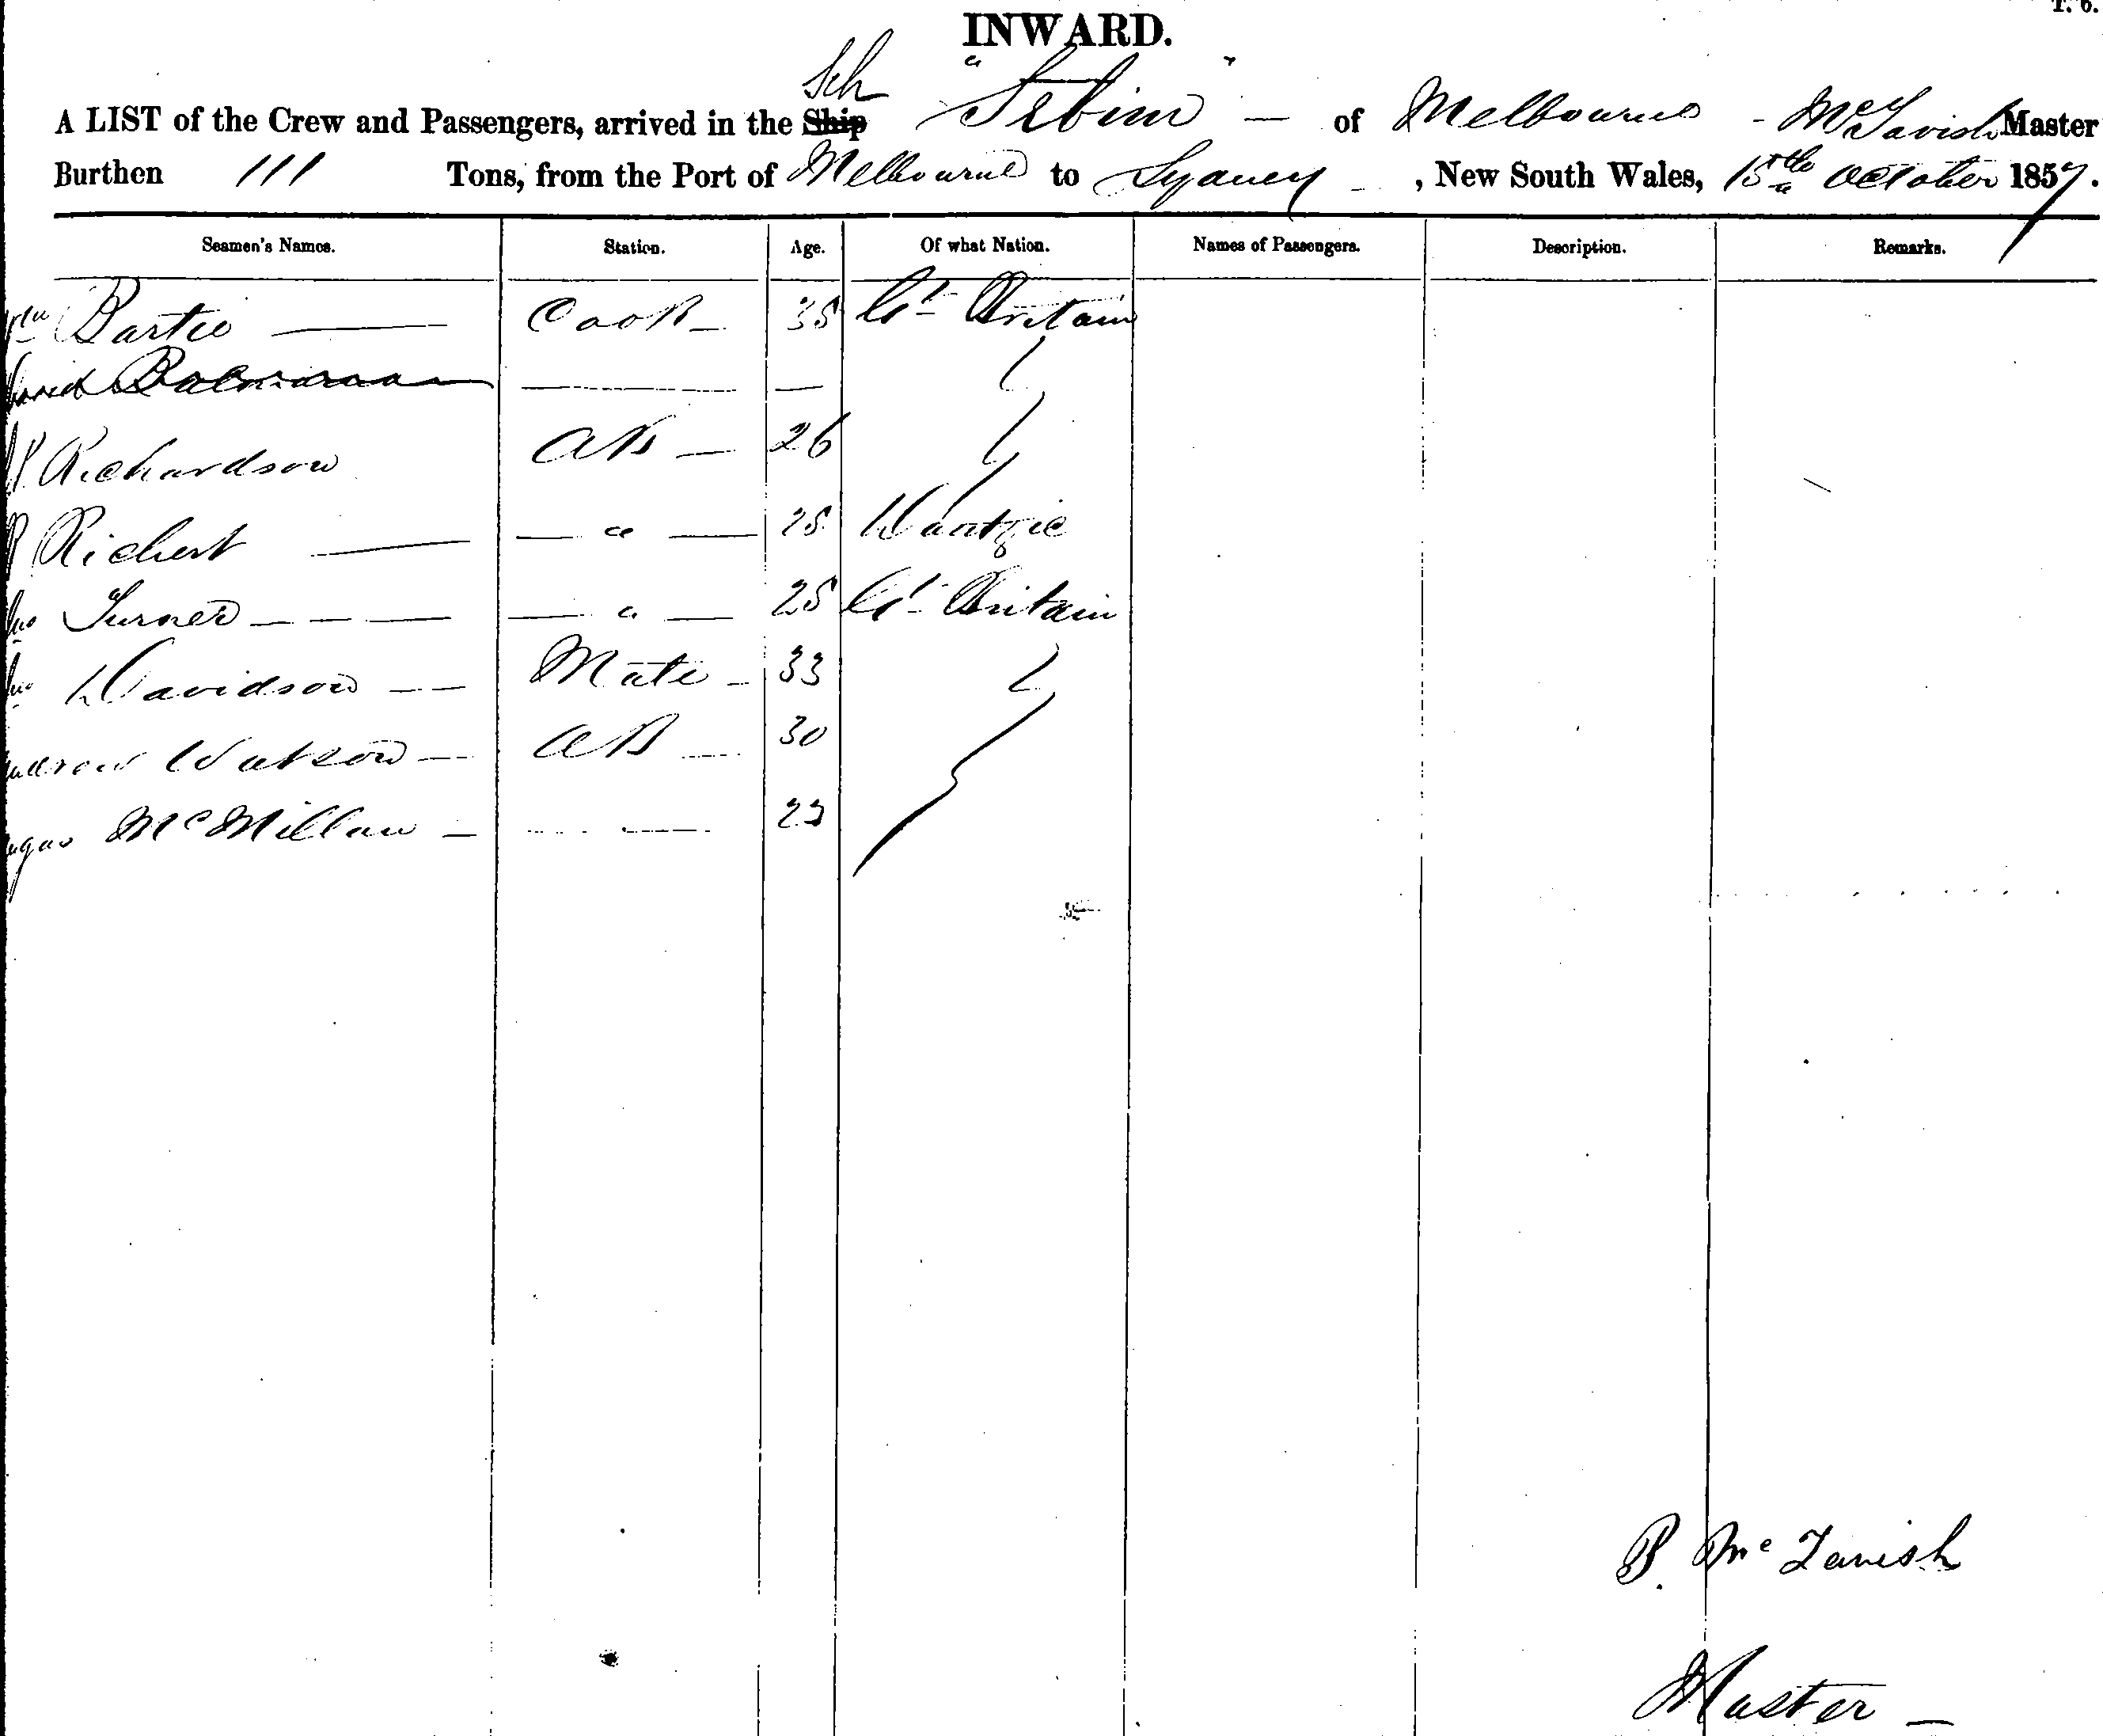 T. 6.
INWARD.
Sch
A LIST of the Crew and Passengers, arrived in the Ship "Sebim" — of Melbourne - McTavish Master
Burthen 111 Tons, from the Port of Melbourne to Sydney - , New South Wales, 15th October 1857.
Seamen's Names. Station. Age. Of what Nation. Names of Passengers. Description. Remarks.
Wm Bartie — Cook — 35 Gt Britain
David — —
Richardson AB — 26
Richert — " — 28 Dantzic
Jno Turner — — — — " — 25 Gt Britain
Jno Davidson — — Mate - 33
Andrew Watson — AB — 30
Angus McMillan — — 23
B. McTavish
Master —